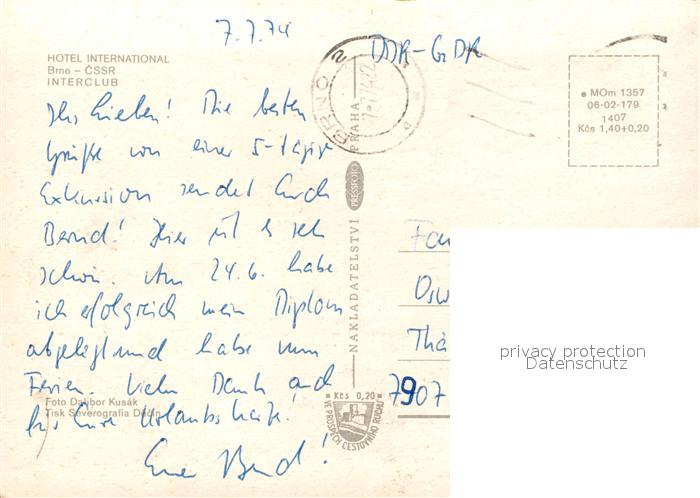 7.7.74
DDR-GDR
HOTEL INTERNATIONAL
Brno – ČSSR
INTERCLUB
Ihr Lieben! Die besten
Grüße von einer 5-tägige
Exkursion sendet Euch
Bernd! Hier ist es sehr
schön. Am 24.6. habe
ich erfolgreich mein Diplom
abgelegt und habe nun
Ferien. Vielen Dank auch
für Eure Urlaubskarte!
Euer Bernd!
Foto Dalibor Kusák
Tisk Severografia Děčín
BRNO 2
NAKLADATELSTVÍ PRESSFOTO PRAHA
MOm 1357
06-02-179
1407
Kčs 1,40+0,20
Fam
Osw
Thä
7907
Kčs 0,20
VE PROSPĚCH CESTOVNÍHO RUCHU
privacy protection
Datenschutz